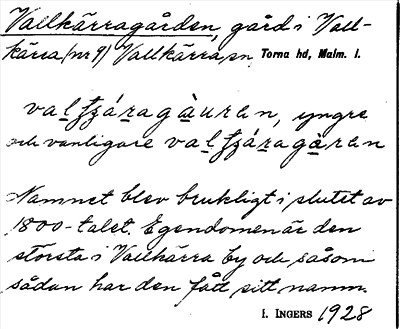 Vallkärragården, gård i Vall-
kärra (nr 9) Vallkärra sn Torna hd, Malm. l.
yngre
och vanligare
Namnet blev brukligt i slutet av
1800-talet. Egendomen är den
största i Vallkärra by och såsom
sådan har den fått sitt namn.
I. INGERS 1928